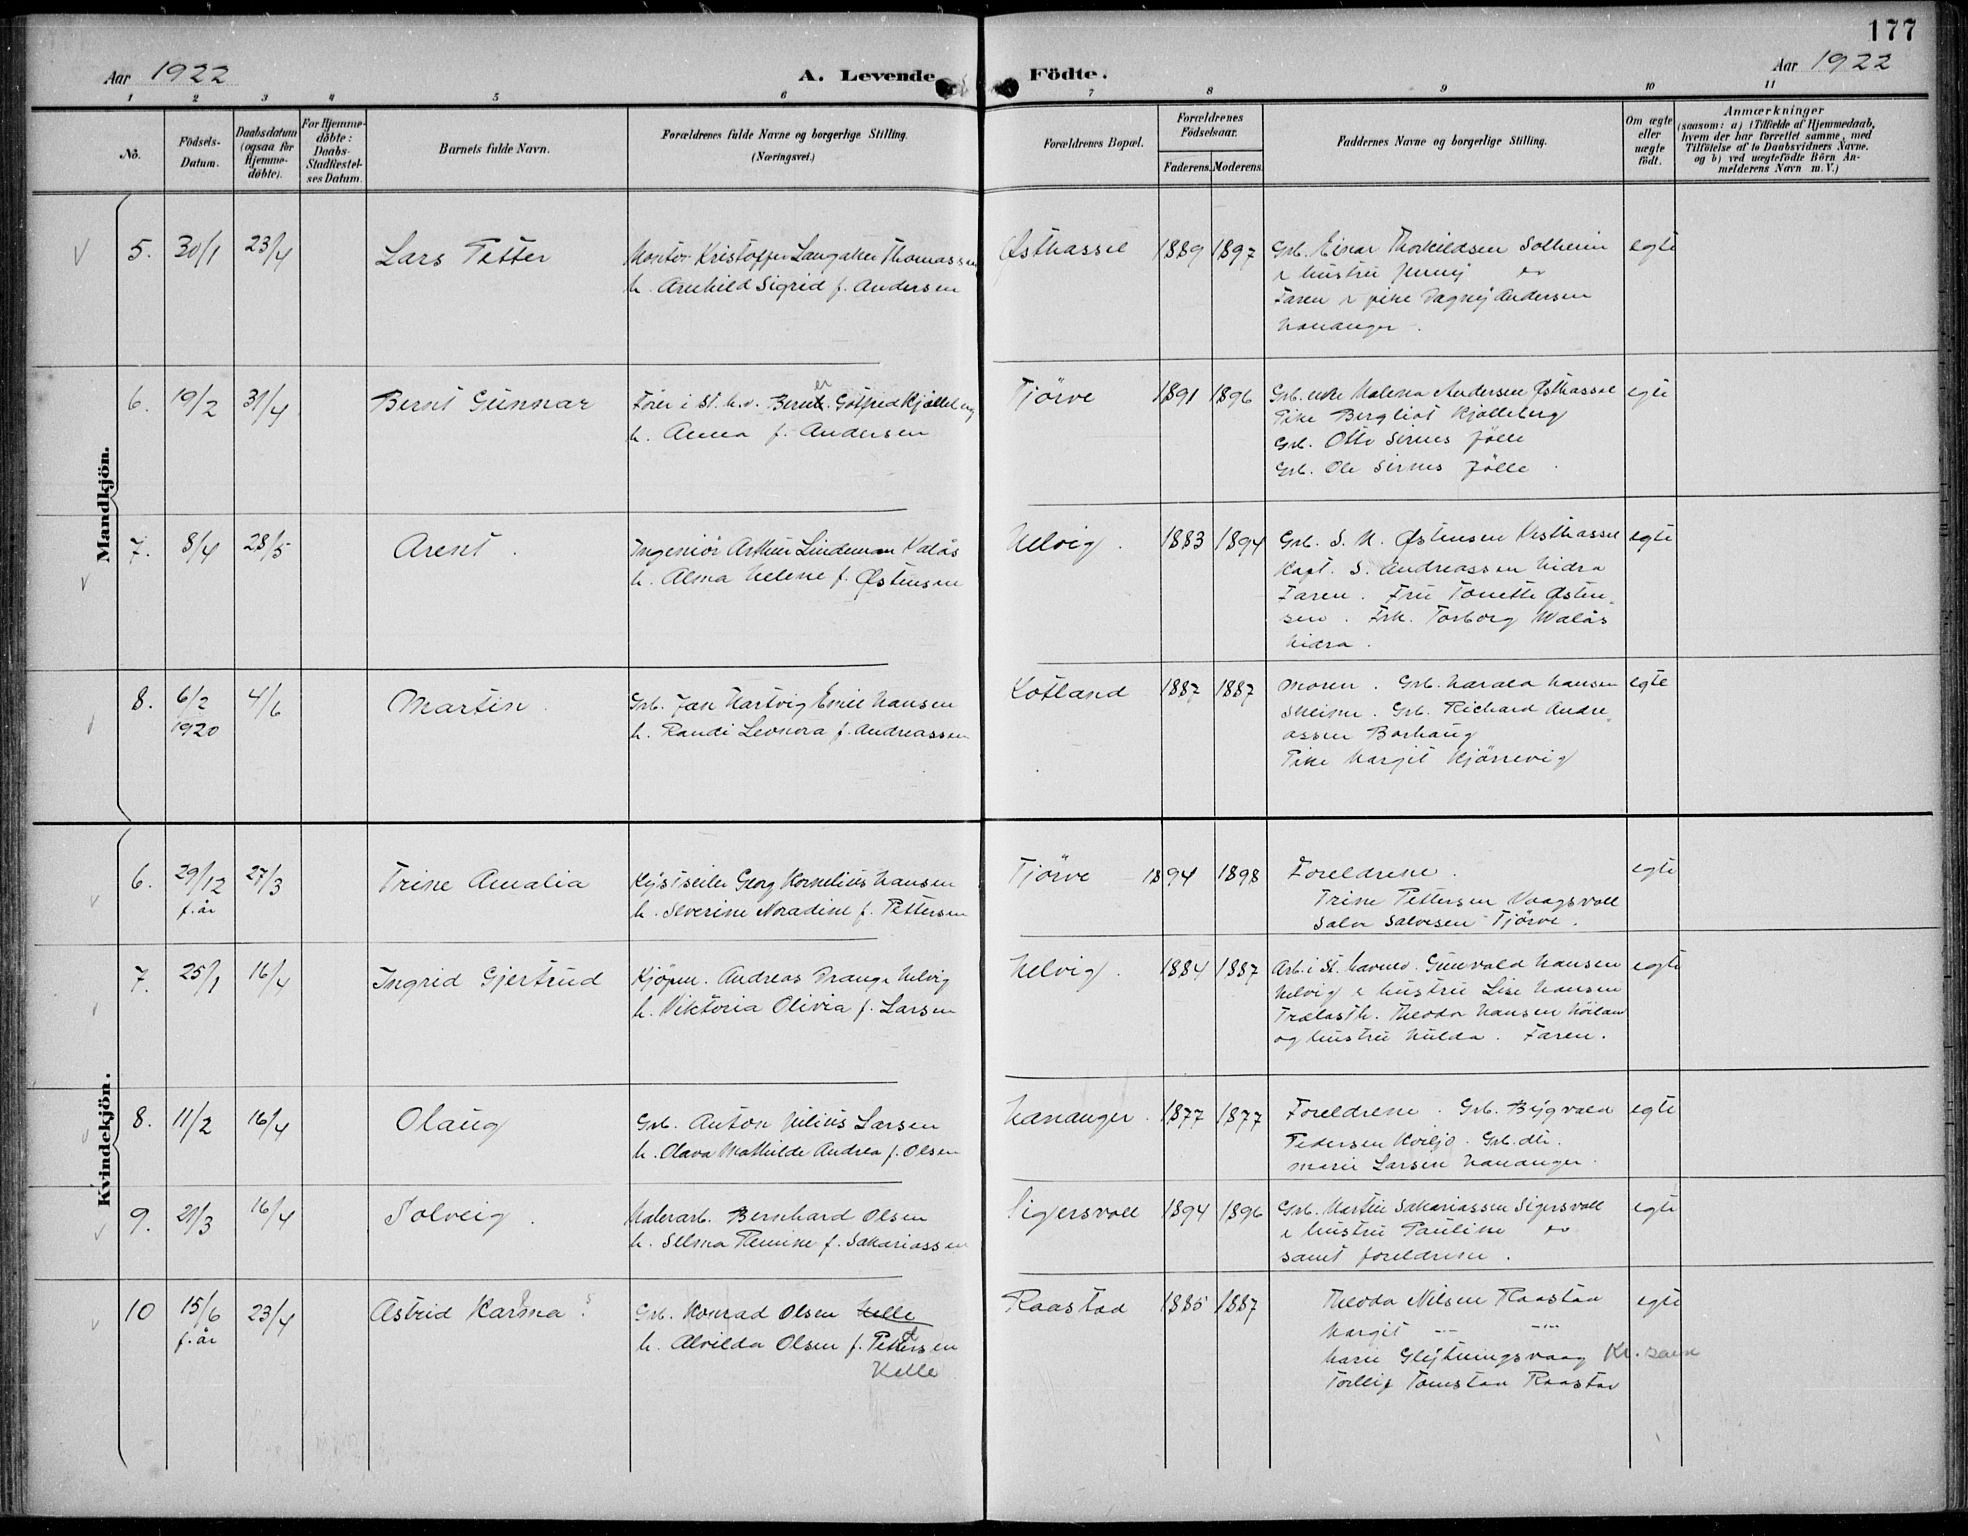 177
Aar 1922
A. Levende Födte.
Aar 1922
1 2 3 4 5 6 7 8 9 10 11
No.
Födsels-
Datum.
Daabsdatum
(ogsaa for
Hjemme-
döbte).
For Hjemme-
döbte:
Daabs-
Stadfæstel-
ses Datum.
Barnets fulde Navn.
Forældrenes fulde Navne og borgerlige Stilling.
(Næringsvei.)
Forældrenes Bopæl.
Forældrenes
Födselsaar.
Faderens. Moderens.
Faddernes Navne og borgerlige Stilling.
Om ægte
eller
uægte
födt.
Anmærkninger
(saasom: a) i Tilfælde af Hjemmedaab,
hvem der har forrettet samme, med
Tilföielse af to Daabsvidners Navne.
og b) ved uægtefödte Börn An-
melderens Navn m. V.)
Mandkjön.
5. 30/1 23/4 Lars Petter
Montör Kristoffer Langaker Thomassen
h. Arnhild Sigrid f. Andersen
Østhassel 1889 1897
Grb. Einar Thorkildsen Solheim
& hustru Jenny
Faren & pike Dagny Andersen
Hananger.
egte
6. 19/2 31/4 Bernt Gunnar
i St. h.v. Bernt Gotfred Kjælleberg
er
h. Anna f. Andersen
Tjörve 1891 1896
Grb. enke Malena Andersen Østhassel
Pike Bergliot Kjælleberg
Grb. Otto Sirnes Jölle
Grb. Ole Sirnes Jölle.
egte
7. 8/4 28/5 Arent.
Ingeniör Arthur Lindeman Valås
h. Alma Helene f. Østensen
Helvig. 1883 1894
Grb. S. M. Østensen Vesthassel
Kapt. S. Andreassen Hidra
Faren. Fru Tonette Østen-
sen. Frk. Torborg Walås
Hidra.
egte
8. 6/2 4/6 Martin.
1920
Grb. Jan Hartvig Emil Hansen
h. Randi Leonora f. Andreassen
Kotland 1887 1887
Moren. Grb. Harald Hansen
Skeime. Grb. Richard Andre-
assen Borhaug
Pike Margit Kjörrevig
egte
Kvindekjön.
6. 29/12 27/3 Trine Amalia
f. år
Kystseiler Georg Kornelius Hansen
h. Severine Noradine f. Pettersen
Tjörve 1894 1898
Foreldrene.
Trine Pettersen Vaagsvoll
Salve Salvesen Tjörve.
egte
7. 25/1 16/4 Ingrid Gjertrud
Kjöpm. Andreas Drange Helvig
h. Viktoria Olivia f. Larsen
Helvig. 1884 1887
Arb. i St. havnev. Gunvald Hansen
Helvig & hustru Lise Hansen
Trælasth. Theodor Hansen
og hustru Hulda. Faren.
egte
8. 11/2 16/4 Olaug
Grb. Anton Julius Larsen
h. Olava Mathilde Andrea f. Olsen
Hananger. 1877 1877
Foreldrene. Grb. Bygvald
Pedersen Kviljo. Grb. dtr.
Marie Larsen Hananger.
egte
9. 21/3 16/4 Solveig.
Malerarb. Bernhard Olsen
h. Selma f. Sakariassen
Sigersvoll 1894 1896
Grb. Martin Sakariassen Sigersvoll
& hustru Pauline
samt foreldrene.
egte
10 15/6 23/4 Astrid Karma
f. år
Grb. Konrad Olsen Kelle
h. Alvilda Olsen f. Pettersen
Kelle
Raastad 1885 1887
Theodor Nilsen Raastad
Margit -"- -"-
Marie Kr. sand
Tomstad Raastad
egte